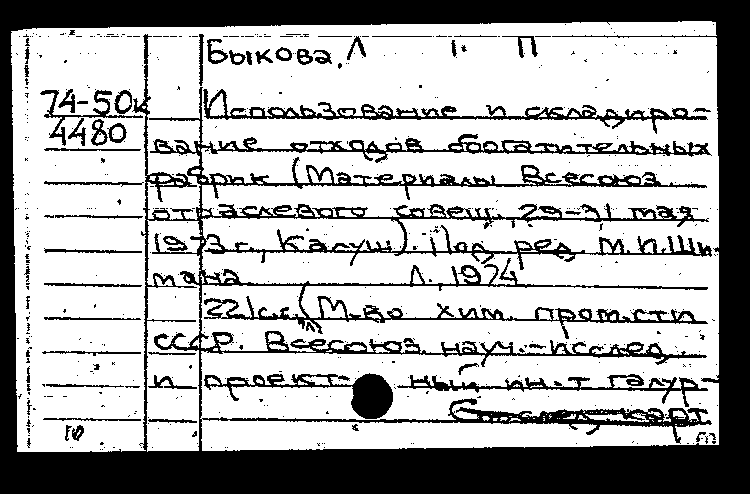 Быкова, Л I. П
74-50к Использование и складиро-
4480 вание отходов обогатительных
фабрик (Материалы Всесоюз.
отраслевого совещ., 29-31 мая
1973 г., Калуш). Под ред. М.П.Ши-
мана. Л., 1974
221 с.с. (М-во хим. пром-сти
СССР. Всесоюз. науч.-исслед.
и проект- ный ин-т галур-
карт.
10